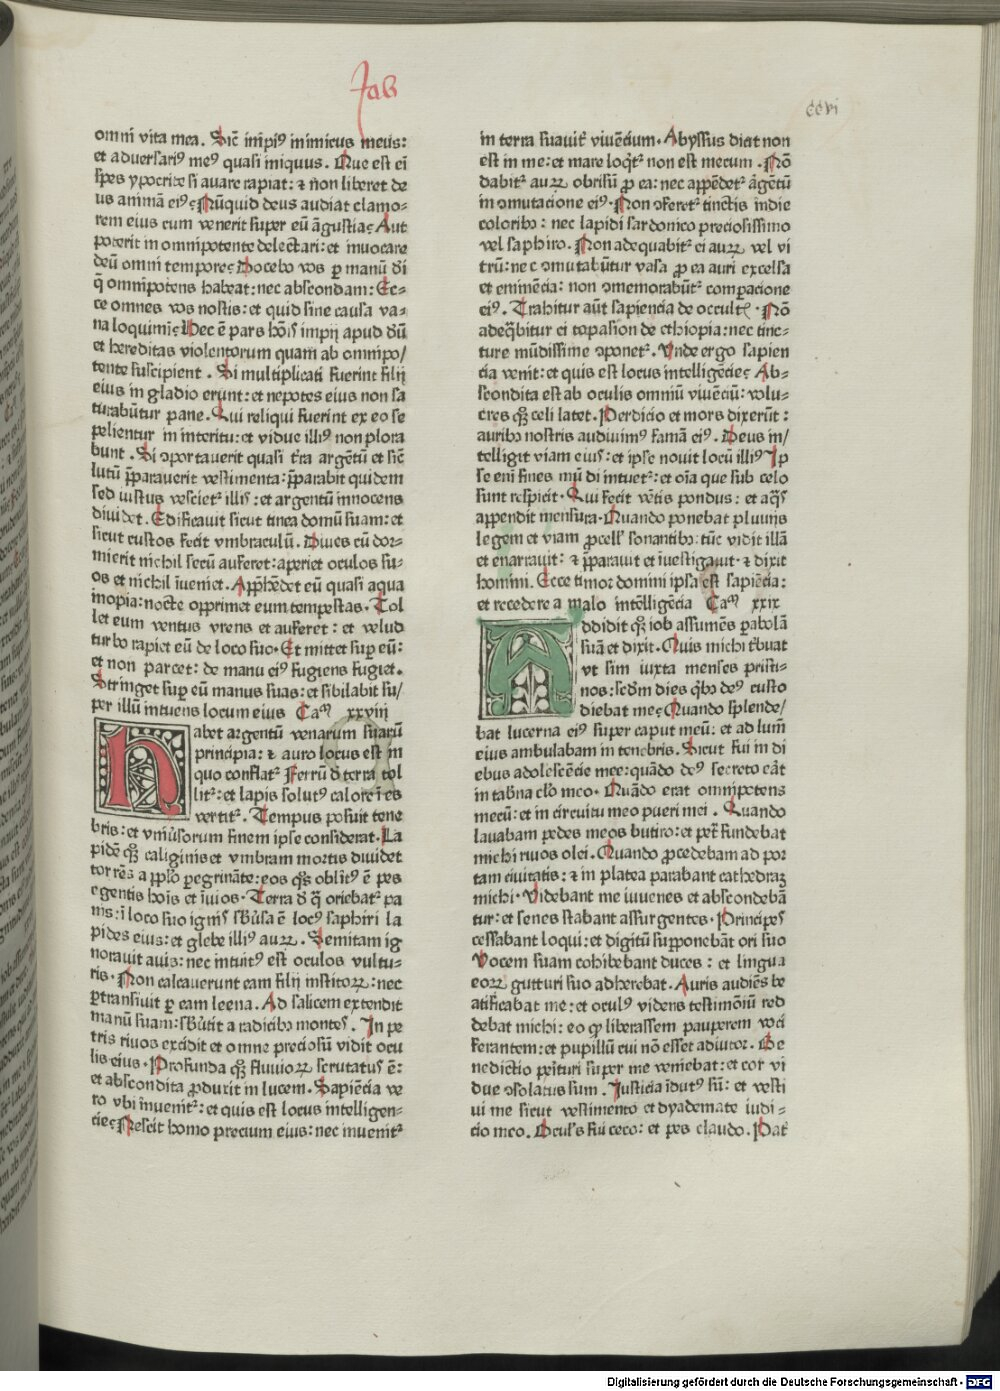 Job
ccvi
omni vita mea. Sic̄ impiꝰ inimicus meus:
et aduersariꝰ meꝰ quasi iniquus. Que est ei
spes ypocrite si auare rapiat: ⁊ non liberet de
us animā eiꝰ? Nūquid deus audiat clamo-
rem eius cum venerit super eū āgustia? Aut
poterit in omnipotente delectari: et inuocare
deū omni tempore? Docebo vos ꝑ manū di
q̄ omnipotens habeat: nec abscondam: Ec-
ce omnes vos nostis: et quid sine causa va-
na loquimī? Hec ē pars hoīs impij apud dū
et hereditas violentorum quam ab omnipo/
tente suscipient. Si multiplicati fuerint filij
eius in gladio erunt: et nepotes eius non sa
turabūtur pane. Qui reliqui fuerint ex eo se
pelientur in interitu: et vidue illiꝰ non plora
bunt. Si ꝯportauerit quasi t̄ra argētū et sic̄
lutū p̄parauerit vestimenta: p̄parabit quidem
sed iustus vescietᷣ illis: et argentū innocens
diuidet. Edificauit sicut tinea domū suam: et
sicut custos fecit vmbraculū. Diues cū dor-
mierit nichil secū auferet: aperiet oculos su-
os et nichil īueniet. Apphēdet eū quasi aqua
inopia: nocte opprimet eum tempestas. Tol
let eum ventus vrens et auferet: et velud
turbo rapiet eū de loco suo. Et mittet suꝑ eū:
et non parcet: de manu eiꝰ fugiens fugiet.
Stringet suꝑ eū manus suas: et sibilabit su/
per illū intuens locum eius Caᵐ xxviij
Habet argentū venarum suarū
principia: ⁊ auro locus est in
quo conflatᷣ. Ferrū d̄ terra tol
litᷣ: et lapis solutꝰ calore ī es
vertitᷣ. Tempus posuit tene
bris: et vniūsorum finem ipse considerat. La
pidē qꝫ caliginis et vmbram mortis diuidet
torrēs a ꝑplo ꝑegrināte: eos qꝫ oblitꝰ ē pes
egentis hoīs et īuios. Terra d̄ q̄ oriebatᷣ pa
nis: ī loco suo igni sb̄ūsa ē locꝰ saphiri la
pides eius: et glebe illiꝰ auꝝ. Semitam ig
norauit auis: nec intuitꝰ est oculos vultu-
ris. Non calcauerunt eam filij institoꝝ: nec
ꝑtransiuit ꝑ eam leena. Ad salicem extendit
manū suam: sb̄ūtit a radicibꝰ montes. In pe
tris riuos excidit et omne preciosū vidit ocu
lis eius. Profunda qꝫ fluuioꝝ scrutatus ē:
et abscondita ꝓduxit in lucem. Sapiēcia ve
ro vbi īnuenitᷣ: et quis est locus intelligen-
cie? Nescit homo precium eius: nec inuenitᷣ
in terra suauitᷣ viuēcium. Abyssus dicit non
est in me: et mare loqᷣtᷣ non est mecum. Nō
dabitᷣ auꝝ obrisū ꝓ ea: nec appēdetᷣ āgētū
in ꝯmutacione eiꝰ. Non ꝯferetᷣ tinctis indie
coloribꝰ: nec lapidi sardonico preciosissimo
vel saphiro. Non adequabitᷣ ei auꝝ vel vi
trū: nec ꝯmutabūtur vasa ꝓ ea auri excelsa
et eminēcia: non ꝯmemorabūtᷣ comꝑacione
eiꝰ. Trahitur aūt sapiencia de occultꝭ. Nō
adeq̄bitur ei topasion de ethiopia: nec tinc-
ture mūdissime ꝯponetᷣ. Vnde ergo sapien
cia venit: et quis est locus intelligēcie? Ab-
scondita est ab oculis omniū viuēciū: volu-
cres qꝫ celi latet. Perdicio et mors dixerūt:
auribꝰ nostris audiuimꝰ famā eiꝰ. Deus in/
telligit viam eius: et ipse nouit locū illiꝰ. Ip
se eni fines mūdi intuetᷣ: et oīa que sub celo
sunt respicit. Qui fecit vētis pondus: et aqᷣs
appendit mensura. Quando ponebat pluuijs
legem et viam ꝓcell sonantibꝰ: tūc vidit illā
et enarrauit: ⁊ p̄parauit et īuestigauit. ⁊ dixit
homini. Ecce timor domini ipsa est sapiēcia:
et recedere a malo intelligēcia Caᵐ xxix
Addidit qꝫ iob assumēs ꝑabolā
suā et dixit. Quis michi t̄buat
vt sim iuxta menses pristi-
nos: scdm dies qᷣbꝰ deꝰ custo
diebat me? Quando splende/
bat lucerna eiꝰ super caput meū: et ad lum̄
eius ambulabam in tenebris. Sicut fui in di
ebus adolescēcie mee: quādo deꝰ secreto eāt
in tab̄na clo meo. Quādo erat omnipotens
mecū: et in circuitu meo pueri mei. Quando
lauabam pedes meos butiro: et petᷣ fundebat
michi riuos olei. Quando ꝓcedebam ad por
tam ciuitatis: ⁊ in platea parabant cathedraꝫ
michi. Videbant me iuuenes et abscondebā
tur: et senes stabant assurgentes. Principes
cessabant loqui: et digitū suꝑponebāt ori suo
Vocem suam cohibebant duces: et lingua
eoꝝ gutturi suo adherebat. Auris audiēs be
atificabat me: et oculꝰ videns testimōiū red
debat michi: eo ꝙ liberassem pauperem voci
ferantem: et pupillū cui nō esset adiutor. Be
nedictio peīturi super me veniebat: et cor vi
due ꝯsolatus sum. Justicia īdutꝰ sū: et vesti
ui me sicut vestimento et dyademate iudi-
cio meo. Oculꝰs fui ceco: et pes claudo. Patᷣ
Digitalisierung gefördert durch die Deutsche Forschungsgemeinschaft - DFG